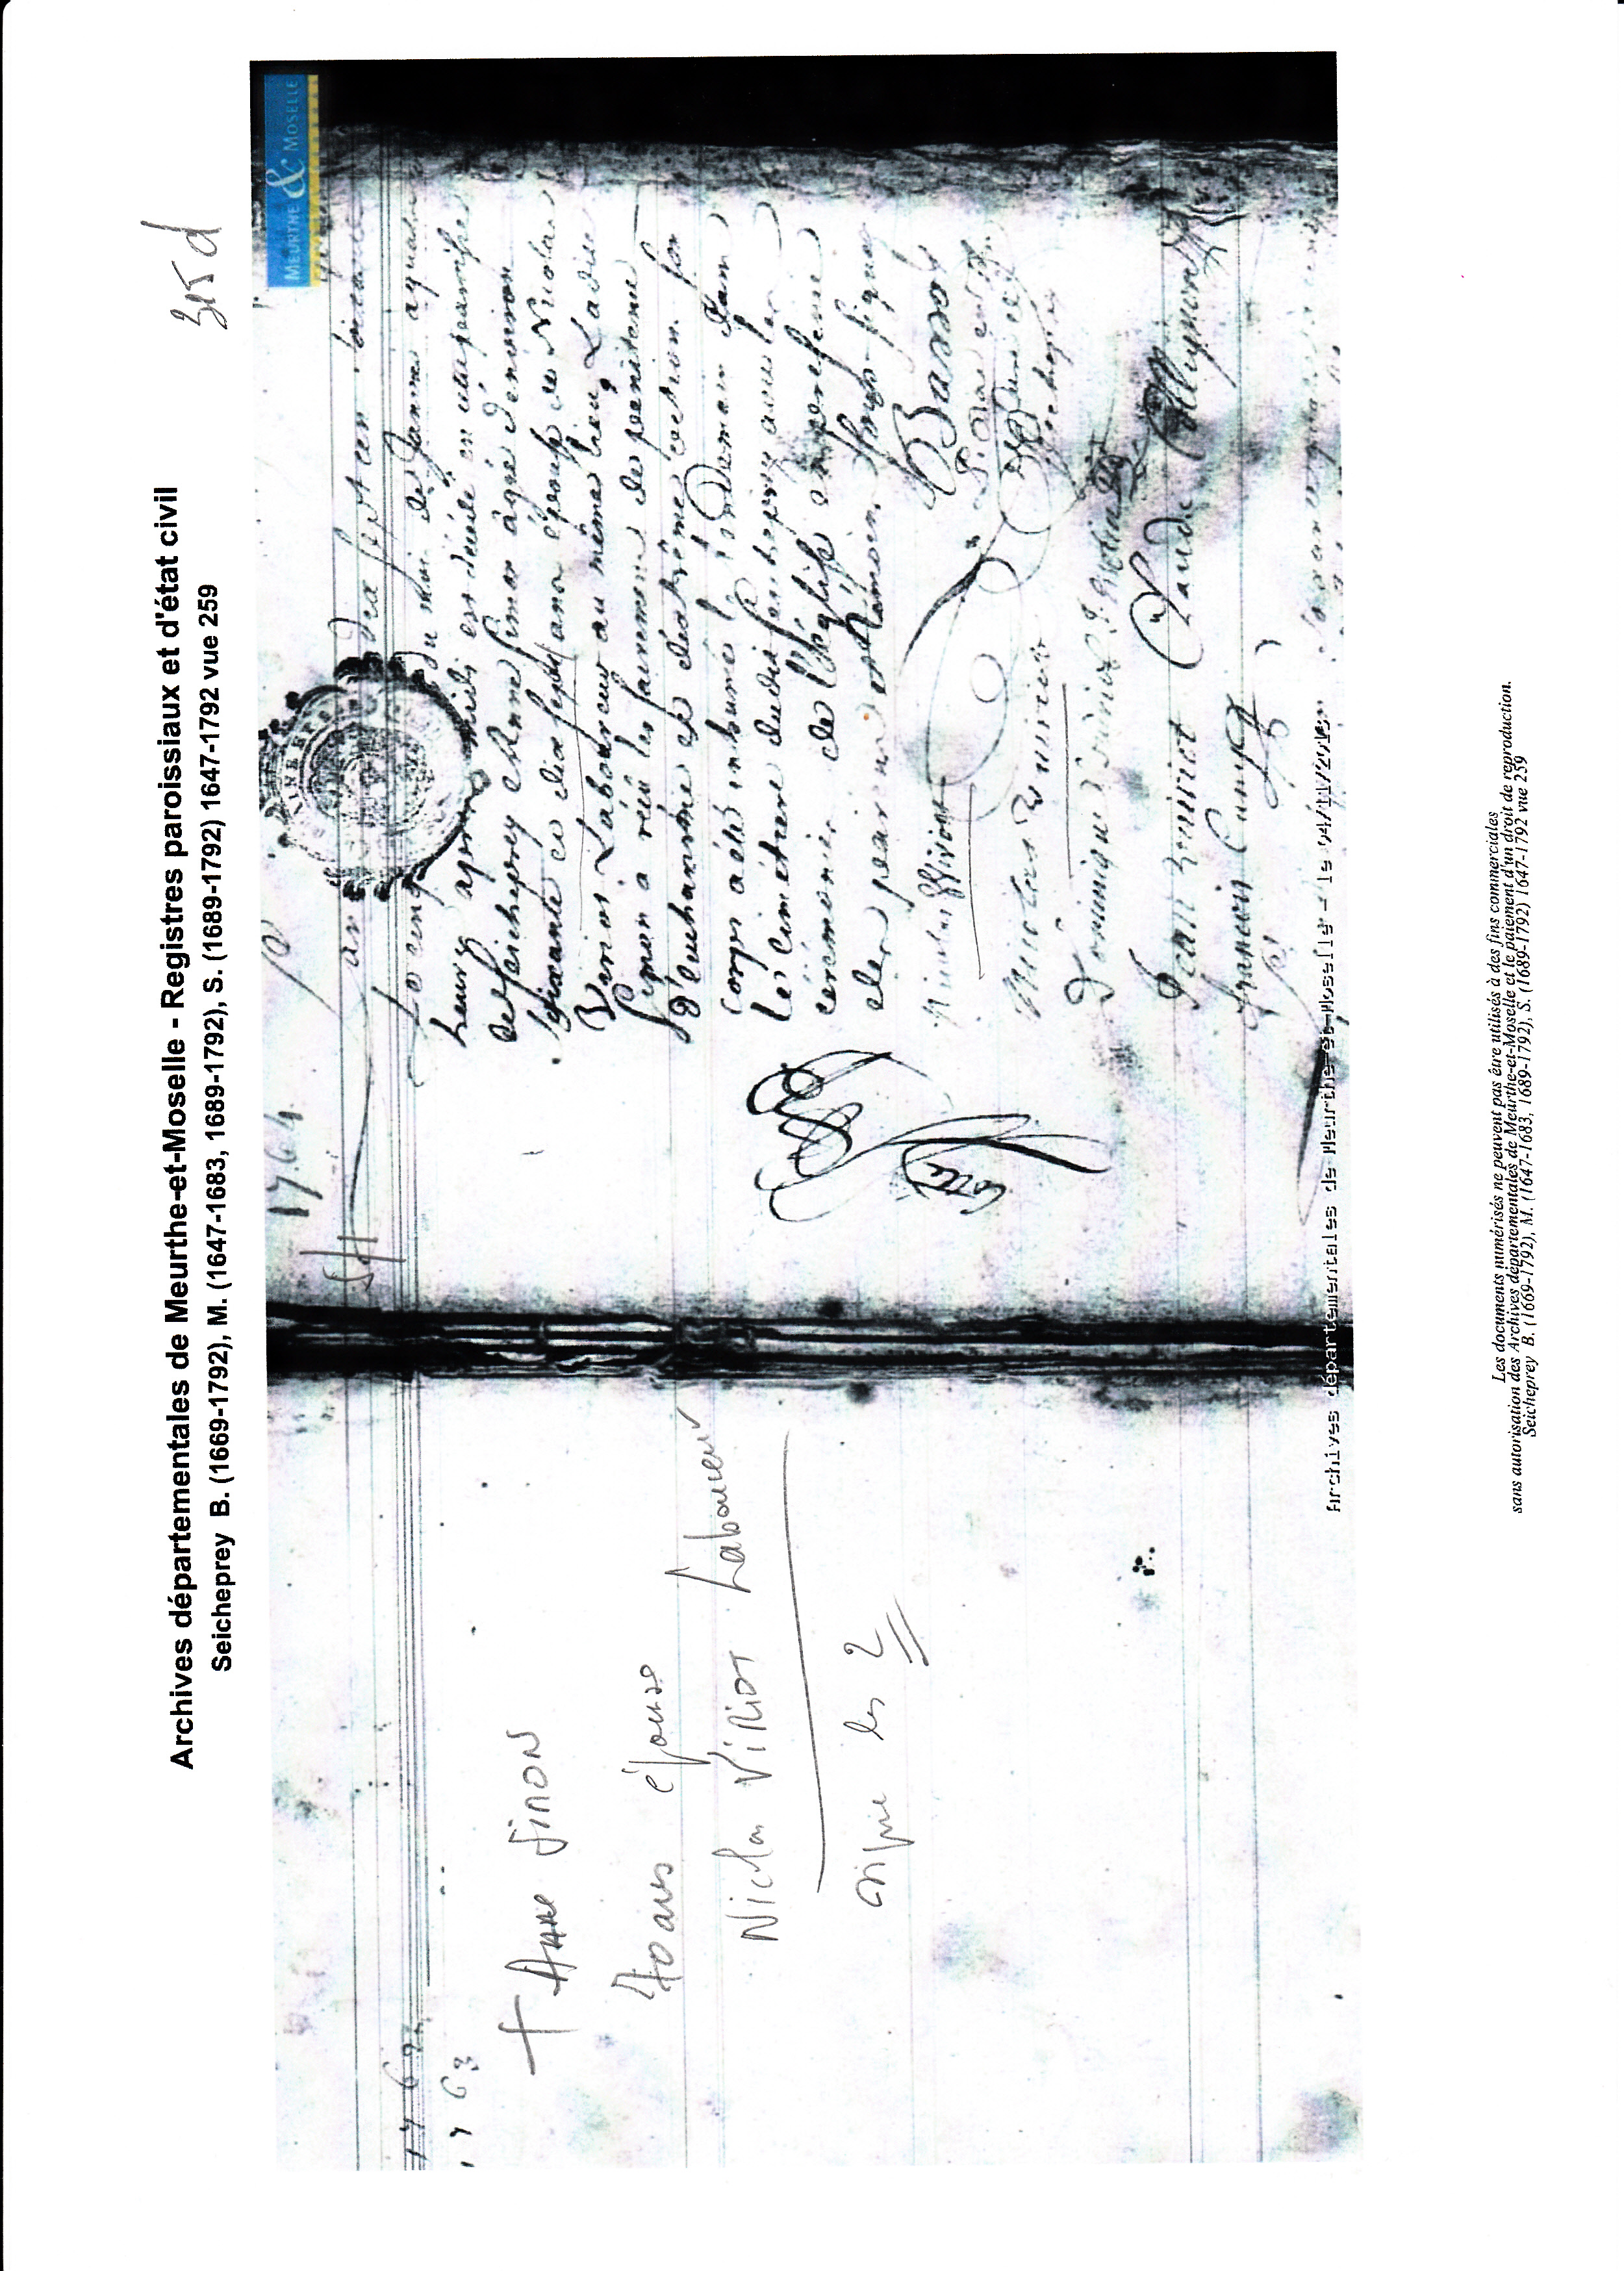 Archives départementales de Meurthe-et-Moselle - Registres paroissiaux et d'état civil
Seicheprey B. (1669-1792), M. (1647-1683, 1689-1792), S. (1689-1792) 1647-1792 vue 259
315 d
MEURTHE & MOSELLE
1762
1763
† Anne Simon
70 ans épouse
Nicolas Viriot Laboureur
signe les 2
1764
an dix sept cen
du mois de Janvier
heures après midi est décédé en cette paroisse
de Seicheprey Anne Simon âgée d'environ
soixante et dix sept ans épouse de Nicolas
Viriot Laboureur au même lieu, Ladite
Simon a reçu les sacremens de pénitence
d'eucharistie et d'extrême onction. son
corps a été inhumé le lendemain dans
le cimetiere dudit Seicheprey avec les
cérémonies de l'église en presence
des parens et témoins soussignés
Nicolas Viriot
Nicolas
Dominique
Claude
Jean
François
Archives départementales de Meurthe-et-Moselle - le 04/11/2015
Les documents numérisés ne peuvent pas être utilisés à des fins commerciales
sans autorisation des Archives départementales de Meurthe-et-Moselle et le paiement d'un droit de reproduction.
Seicheprey B. (1669-1792), M. (1647-1683, 1689-1792), S. (1689-1792) 1647-1792 vue 259